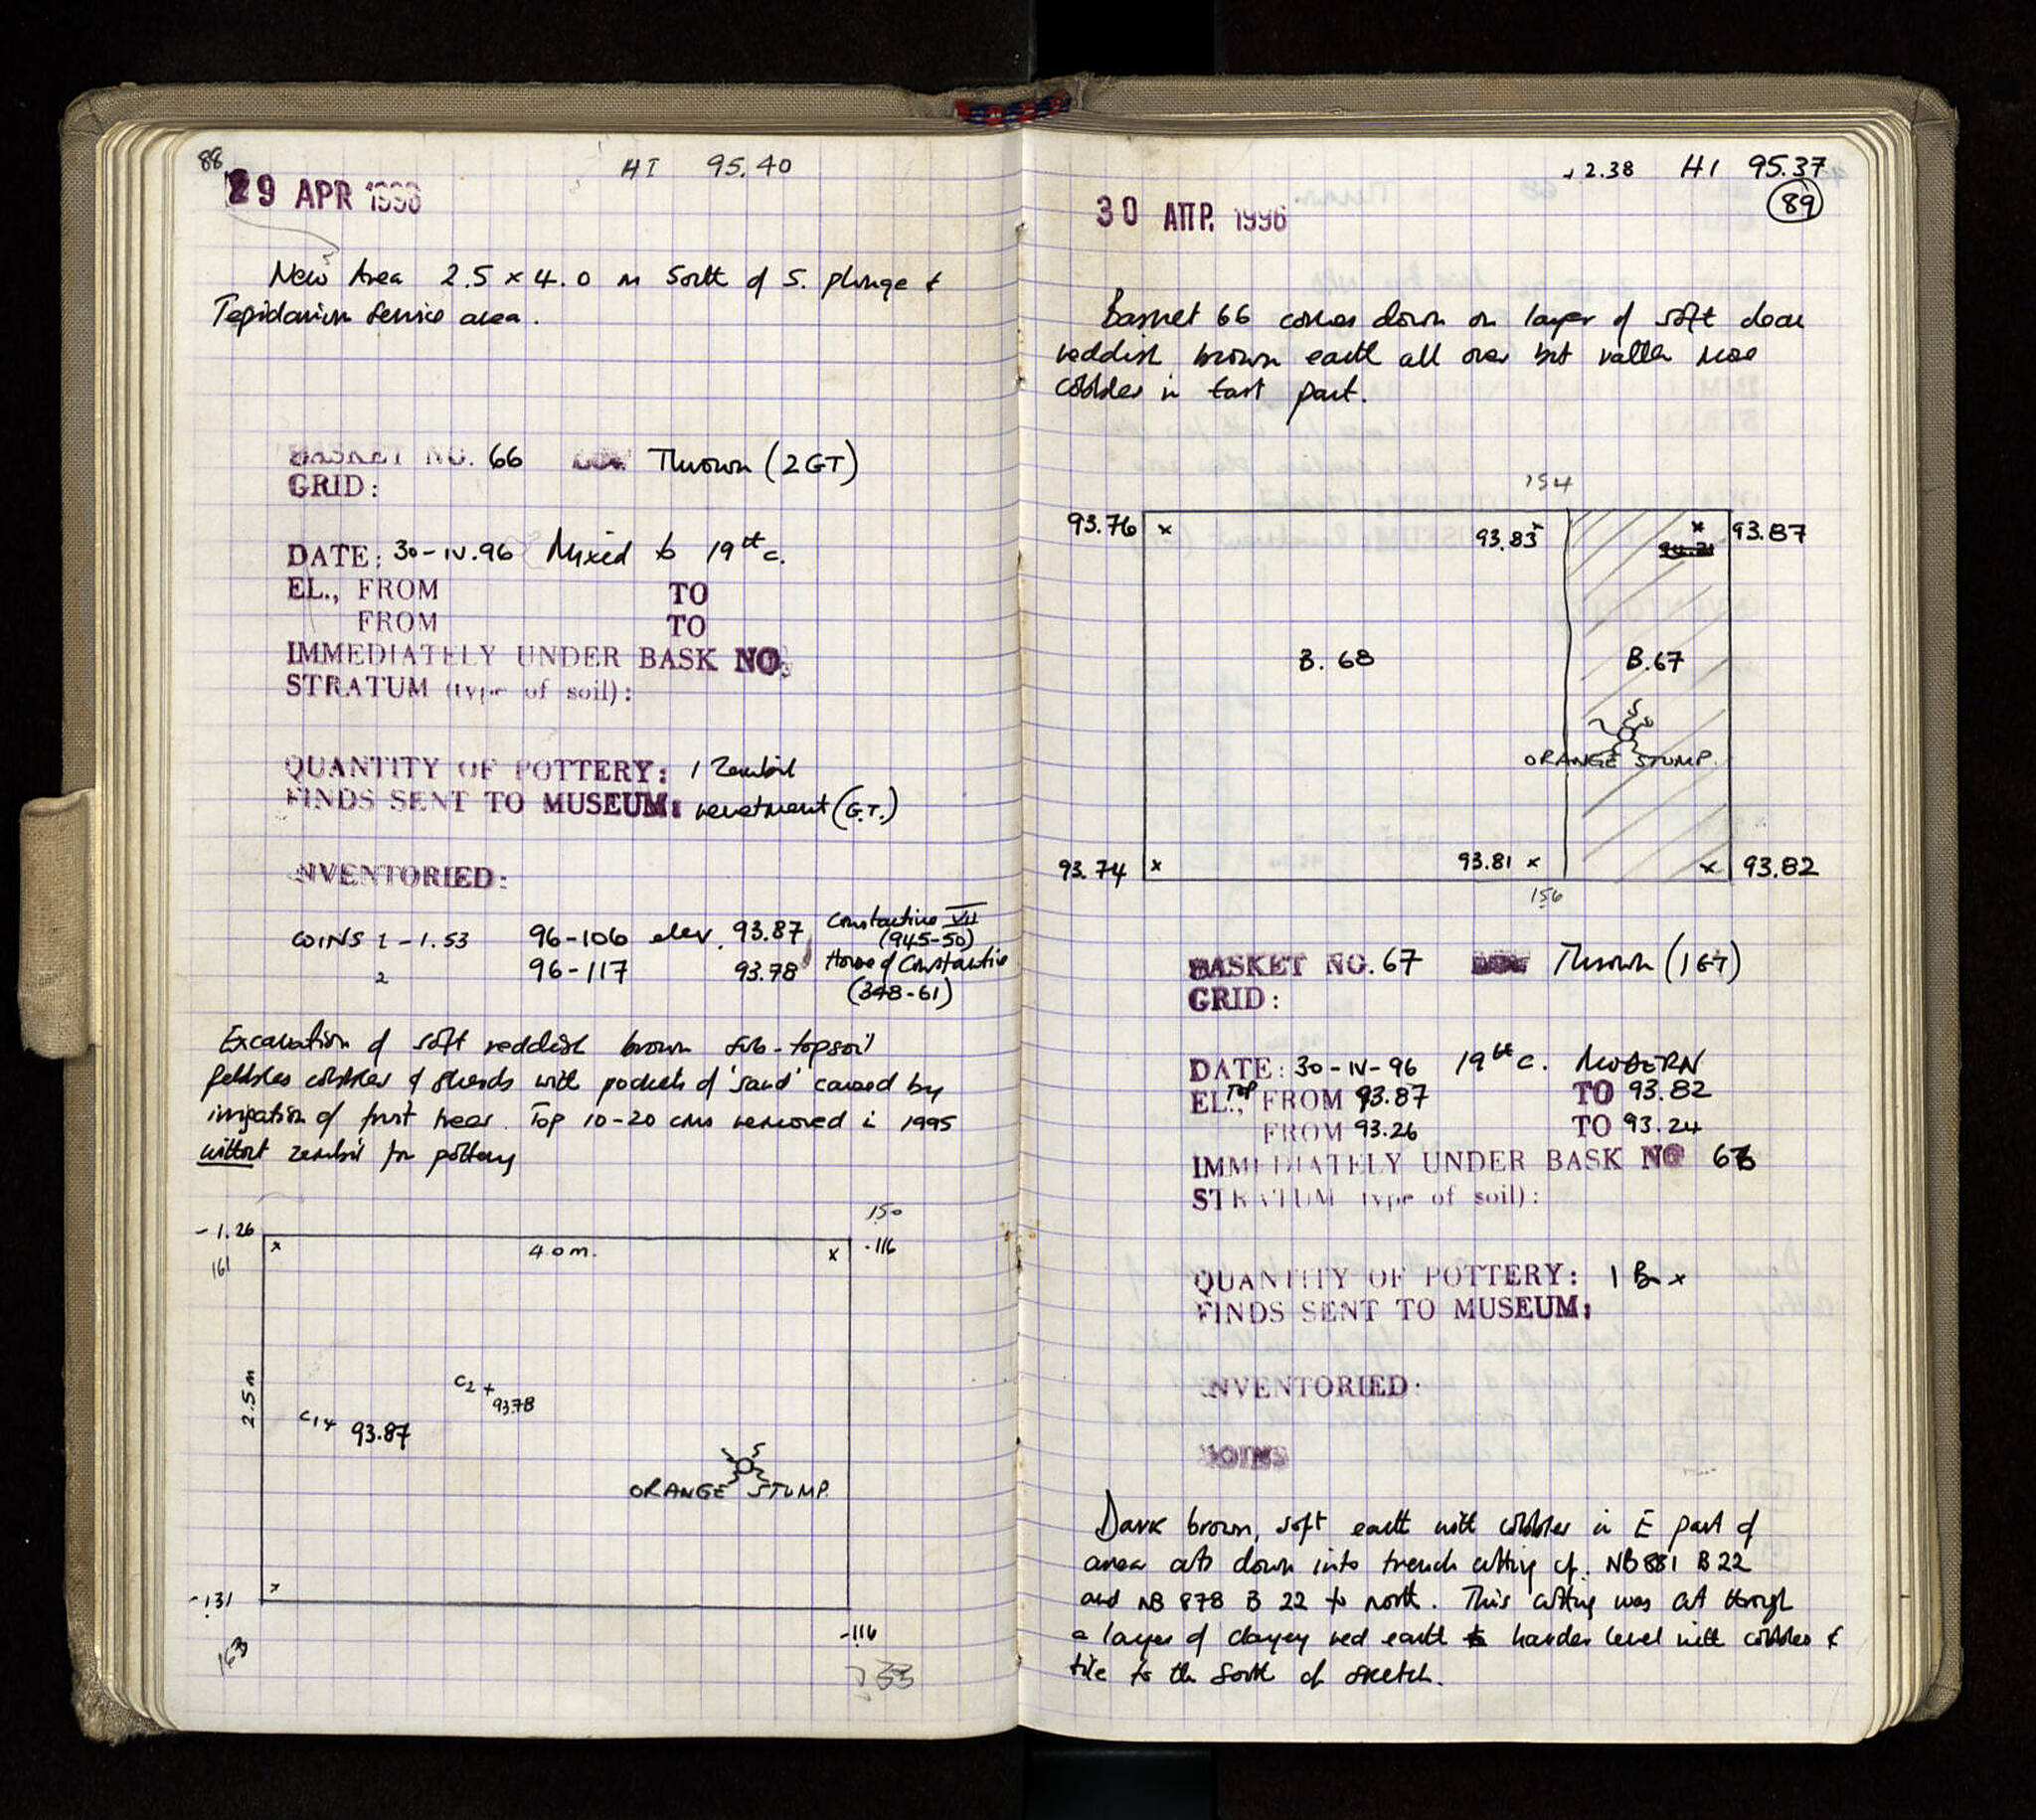 88
HI 95.40
29 APR 1996
New Area 2.5 x 4.0 m South of S. plunge &
Tepidarium Service area.
BASKET NO. 66 Thrown (2GT)
GRID:
DATE: 30-IV.96 Mixed to 19th c.
EL., FROM TO
FROM TO
IMMEDIATELY UNDER BASK NO.
STRATUM (type of soil):
QUANTITY OF POTTERY: 1 Zembil
FINDS SENT TO MUSEUM: revetment (G.T.)
INVENTORIED:
COINS 1 -1.53 96-106 elev. 93.87 Constantine VII (945-50)
2 96-117 93.78 House of Constantine (348-61)
Excavation of soft reddish brown sub-topsoil
pebbles cobbles & sherds with pockets of 'sand' caused by
irrigation of fruit trees. Top 10-20 cms removed in 1995
without zembil for pottery
-1.26
161
4.0 m.
150
-116
2.5 m
C1+ 93.87
C2 +
93.78
ORANGE STUMP.
-131
163
-116
+2.38 HI 95.37
89
30 ΑΠΡ. 1996
Basket 66 comes down on layer of soft clean
reddish brown earth all over but rather more
cobbles in East part.
154
93.76 x
93.83 x
x 93.87
B. 68
B.67
ORANGE STUMP.
93.74 x
93.81 x
x 93.82
156
BASKET NO. 67 Thrown (1GT)
GRID:
DATE: 30-IV-96 19th c. MODERN
EL., TOP FROM 93.87 TO 93.82
FROM 93.26 TO 93.24
IMMEDIATELY UNDER BASK NO 66
STRATUM (type of soil):
QUANTITY OF POTTERY: 1 Box
FINDS SENT TO MUSEUM:
INVENTORIED:
COINS
Dark brown, soft earth with cobbles in E part of
area cuts down into trench cutting cf. NB881 B22
and NB 878 B 22 to north. This cutting was cut through
a layer of clayey red earth harder level with cobbles &
tile to the South of sketch.